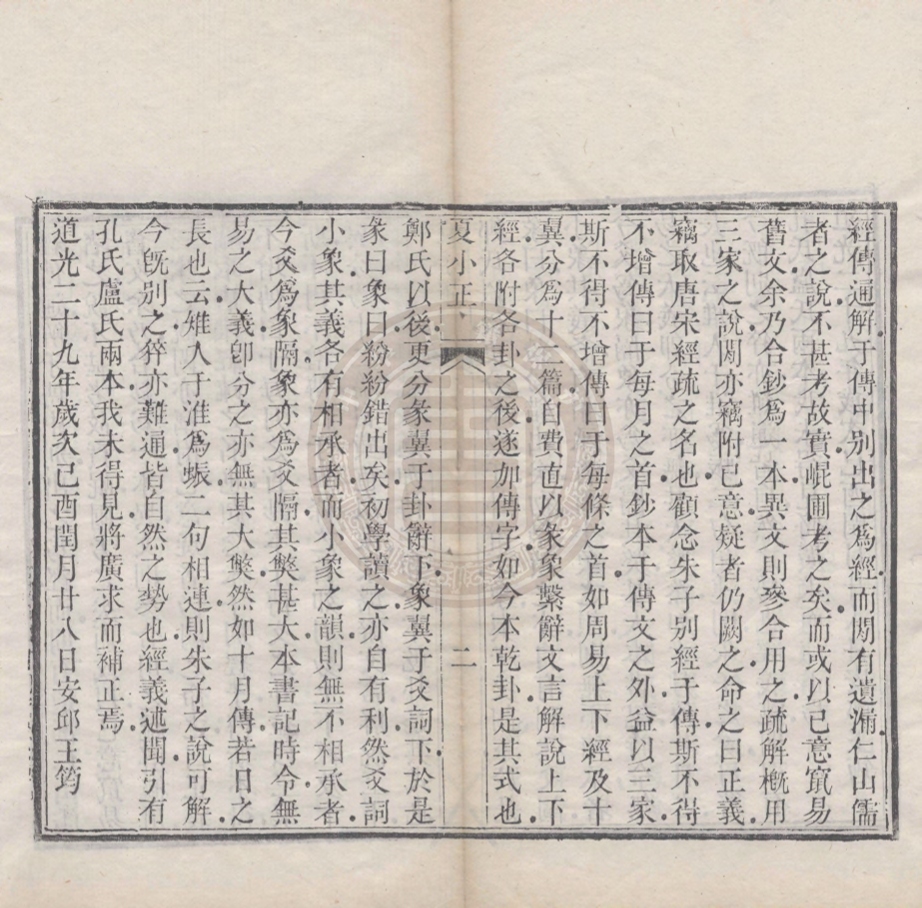 經傳通解于傳中別出之爲經而閒有遺漏仁山儒
者之說不甚考故實崐圃考之矣而或以己意竄易
舊文余乃合鈔爲一本異文則參合用之疏解槪用
三家之說閒亦竊附己意疑者仍闕之命之曰正義
竊取唐宋經疏之名也顧念朱子別經于傳斯不得
不增傳曰于每月之首鈔本于傳文之外益以三家
斯不得不增傳曰于每條之首如周易上下經及十
翼分爲十二篇自費直以彖象繫辭文言解說上下
經各附各卦之後遂加傳字如今本乾卦是其式也
夏小正 二
鄭氏以後更分彖翼于卦辭下象翼于爻詞下於是
彖曰象曰紛紛錯出矣初學讀之亦自有利然爻詞
小象其義各有相承者而小象之韻則無不相承者
今爻爲象隔象亦爲爻隔其獘甚大本書記時令無
易之大義卽分之亦無其大獘然如十月傳若日之
長也云雉入于淮爲蜃二句相連則朱子之說可解
今旣別之猝亦難通皆自然之勢也經義述聞引有
孔氏盧氏兩本我未得見將廣求而補正焉
道光二十九年歲次己酉閏月廿八日安邱王筠